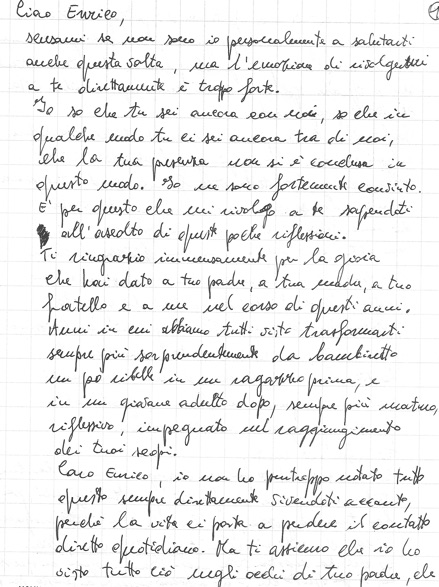 Ciao Enrico, 1
scusami se non sono io personalmente a salutarti
anche questa volta, ma l'emozione di rivolgermi
a te direttamente è troppo forte.
Io so che tu sei ancora con noi, so che in
qualche modo tu ci sei ancora tra di noi,
che la tua presenza non si è conclusa in
questo modo. Io ne sono fortemente convinto.
E' per questo che mi rivolgo a te sapendoti
all'ascolto di queste poche riflessioni.
Ti ringrazio immensamente per la gioia
che hai dato a tuo padre, a tua madre, a tuo
fratello e a me nel corso di questi anni.
Anni in cui abbiamo tutti visto trasformarti
sempre più sorprendentemente da bambinetto
un pò ribelle in un ragazzo prima, e
in un giovane adulto dopo, sempre più maturo,
riflessivo, impegnato nel raggiungimento
dei tuoi scopi.
Caro Enrico, io non ho purtroppo notato tutto
questo sempre direttamente vivendoti accanto,
perché la vita ci porta a perdere il contatto
diretto quotidiano. Ma ti assicuro che io ho
visto tutto ciò negli occhi di tuo padre, che